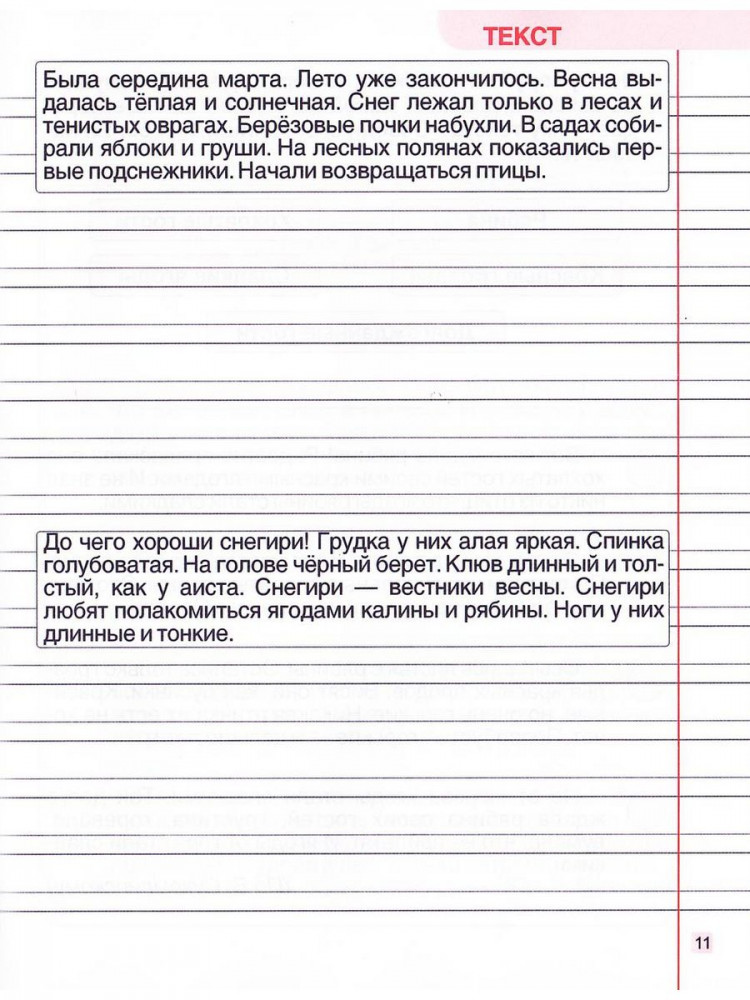 ТЕКСТ
Была середина марта. Лето уже закончилось. Весна вы-
далась тёплая и солнечная. Снег лежал только в лесах и
тенистых оврагах. Берёзовые почки набухли. В садах соби-
рали яблоки и груши. На лесных полянах показались пер-
вые подснежники. Начали возвращаться птицы.
До чего хороши снегири! Грудка у них алая яркая. Спинка
голубоватая. На голове чёрный берет. Клюв длинный и тол-
стый, как у аиста. Снегири — вестники весны. Снегири
любят полакомиться ягодами калины и рябины. Ноги у них
длинные и тонкие.
11